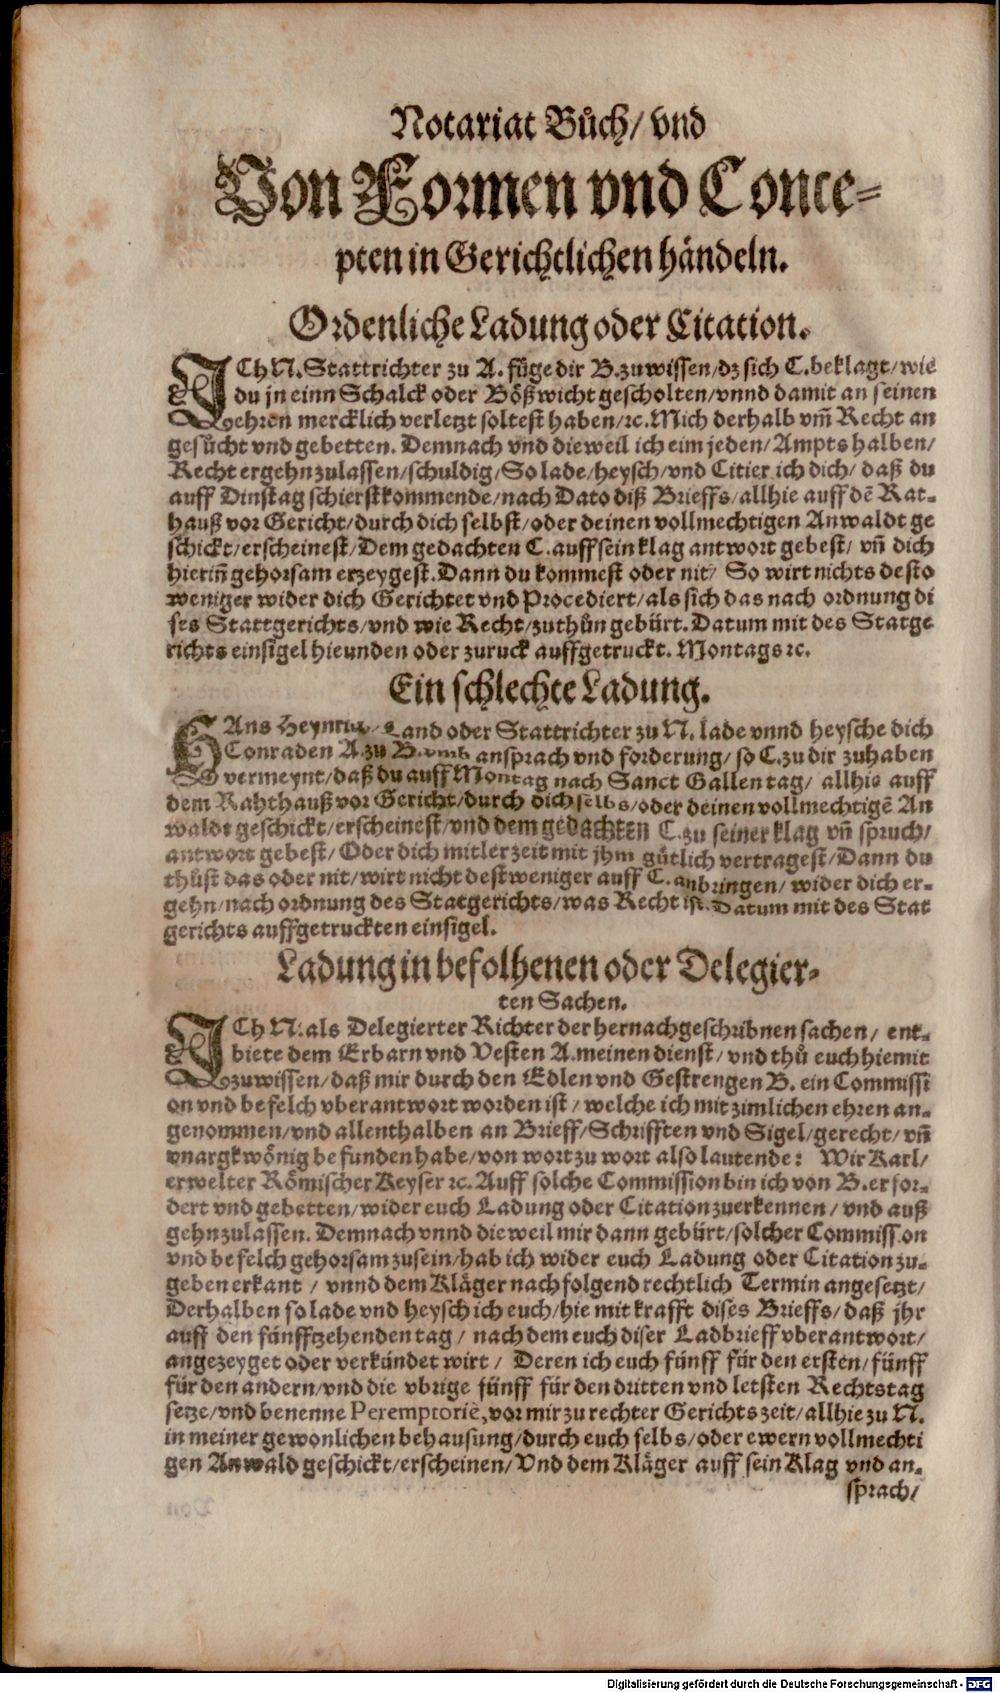 Notariat Bůch/ vnd
Von Formen vnd Conce-
pten in Gerichtlichen händeln.
Ordenliche Ladung oder Citation.
ICh N. Stattrichter zu A. füge dir B. zuwissen/ dz sich C. beklagt/ wie
du jn einn Schalck oder Bößwicht gescholten/ vnnd damit an seinen
ehren mercklich verletzt soltest haben/ ꝛc. Mich derhalb vm̃ Recht an
gesůcht vnd gebetten. Demnach vnd dieweil ich eim jeden/ Ampts halben/
Recht ergehn zulassen/ schuldig/ So lade/ heysch/ vnd Citier ich dich/ daß du
auff Dinstag schierstkommende/ nach Dato diß Brieffs/ allhie auff dẽ Rat-
hauß vor Gericht/ durch dich selbst/ oder deinen vollmechtigen Anwaldt ge
schickt/ erscheinest/ Dem gedachten C. auff sein klag antwort gebest/ vñ dich
hieriñ gehorsam erzeygest. Dann du kommest oder nit/ So wirt nichts desto
weniger wider dich Gerichtet vnd Procediert/ als sich das nach ordnung di
ses Stattgerichts/ vnd wie Recht/ zuthůn gebürt. Datum mit des Statge
richts einsigel hieunden oder zuruck auffgetruckt. Montags ꝛc.
Ein schlechte Ladung.
HAns Heynrich/ Land oder Stattrichter zu N. lade vnnd heysche dich
Conraden A. zu B. vmb ansprach vnd forderung/ so C. zu dir zuhaben
vermeynt/ daß du auff Montag nach Sanct Gallen tag/ allhie auff
dem Rahthauß vor Gericht/ durch dich selbs/ oder deinen vollmechtigẽ An
waldt geschickt/ erscheinest/ vnd dem gedachten C. zu seiner klag vñ spruch/
antwort gebest/ Oder dich mitlerzeit mit jhm gütlich vertragest/ Dann du
thůst das oder nit/ wirt nicht destweniger auff C. anbringen/ wider dich er-
gehn/ nach ordnung des Statgerichts/ was Recht ist. Datum mit des Stat
gerichts auffgetruckten einsigel.
Ladung in befolhenen oder Delegier-
ten Sachen.
ICh N. als Delegierter Richter der hernachgeschribnen sachen/ ent-
biete dem Erbarn vnd Vesten A. meinen dienst/ vnd thů euch hiemit
zuwissen/ daß mir durch den Edlen vnd Gestrengen B. ein Commissi
on vnd befelch vberantwort worden ist/ welche ich mit zimlichen ehren an-
genommen/ vnd allenthalben an Brieff/ Schrifften vnd Sigel/ gerecht/ vñ
vnargkwönig befunden habe/ von wort zu wort also lautende: Wir Karl/
erwelter Römischer Keyser ꝛc. Auff solche Commission bin ich von B. erfor-
dert vnd gebetten/ wider euch Ladung oder Citation zuerkennen/ vnd auß
gehn zulassen. Demnach vnnd dieweil mir dann gebürt/ solcher Commission
vnd befelch gehorsam zusein/ hab ich wider euch Ladung oder Citation zu-
geben erkant/ vnnd dem Kläger nachfolgend rechtlich Termin angesetzt/
Derhalben so lade vnd heysch ich euch/ hie mit krafft dises Brieffs/ daß jhr
auff den fünfftzehenden tag/ nach dem euch diser Ladbrieff vberantwort/
angezeyget oder verkündet wirt/ Deren ich euch fünff für den ersten/ fünff
für den andern/ vnd die vbrige fünff für den dritten vnd letsten Rechtstag
setze/ vnd benenne Peremptoriè, vor mir zu rechter Gerichtszeit/ allhie zu N.
in meiner gewonlichen behausung/ durch euch selbs/ oder ewern vollmechti
gen Anwald geschickt/ erscheinen/ Vnd dem Kläger auff sein Klag vnd an-
sprach/
Digitalisierung gefördert durch die Deutsche Forschungsgemeinschaft - DFG